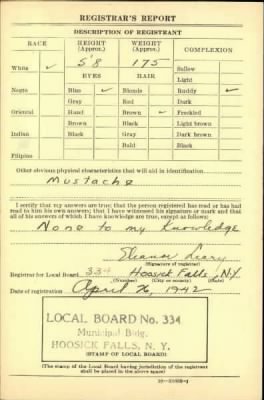 REGISTRAR'S REPORT
DESCRIPTION OF REGISTRANT
RACE HEIGHT (Approx.) WEIGHT (Approx.) COMPLEXION
5'8 175
White ✓ Sallow
EYES HAIR Light
Negro Blue ✓ Blonde Ruddy ✓
Gray Red Dark
Oriental Hazel Brown ✓ Freckled
Brown Black Light brown
Indian Black Gray Dark brown
Bald Black
Filipino
Other obvious physical characteristics that will aid in identification
Mustache
I certify that my answers are true; that the person registered has read or has had read to him his own answers; that I have witnessed his signature or mark and that all of his answers of which I have knowledge are true, except as follows:
None to my Knowledge
Eleanor Leary
(Signature of registrar)
Registrar for Local Board 334 Hoosick Falls, N.Y.
(Number) (City or county) (State)
Date of registration April 26, 1942
LOCAL BOARD No. 334
Municipal Bldg.
HOOSICK FALLS, N. Y.
(STAMP OF LOCAL BOARD)
(The stamp of the Local Board having jurisdiction of the registrant
shall be placed in the above space)